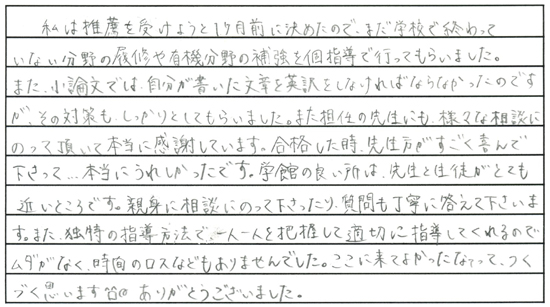 私は推薦を受けようと1ヶ月前に決めたので、まだ学校で終わって
いない分野の履修や有機分野の補強を個指導で行ってもらいました。
また、小論文では、自分が書いた文章を英訳をしなければならなかったのです
が、その対策も、しっかりとしてもらいました。また担任の先生にも、様々な相談に
のって頂いて本当に感謝しています。合格した時、先生方がすごく喜んで
下さって…本当にうれしかったです。学館の良い所は、先生と生徒がとても
近いところです。親身に相談にのって下さったり、質問も丁寧に答えて下さいま
す。また、独特の指導方法で、一人一人を把握して適切に指導してくれるので
ムダがなく、時間のロスなどもありませんでした。ここに来てよかったなって、つく
づく思います ありがとうございました。